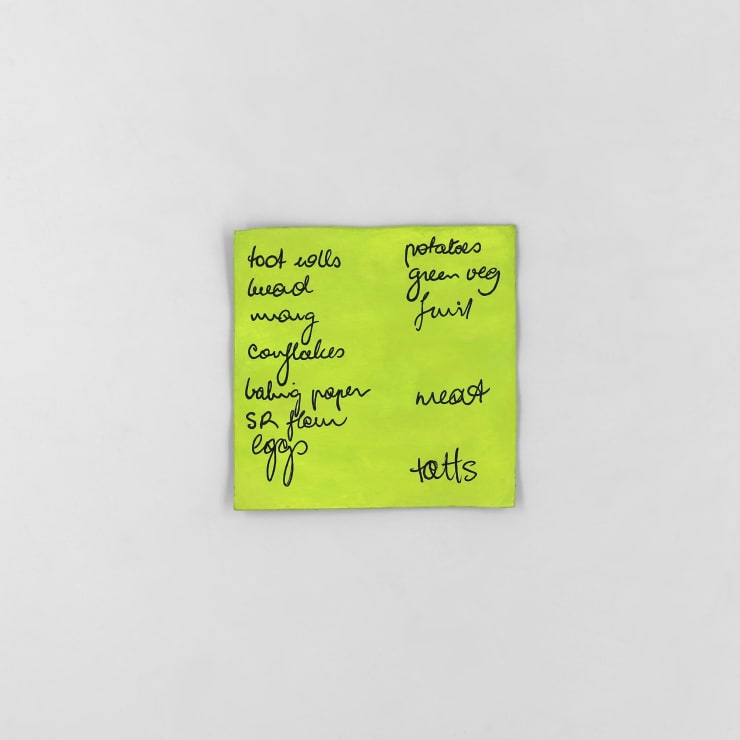 toot rolls
bread
marg
cornflakes
baking paper
SR flour
eggs
potatoes
green veg
fruit
meat
tatts